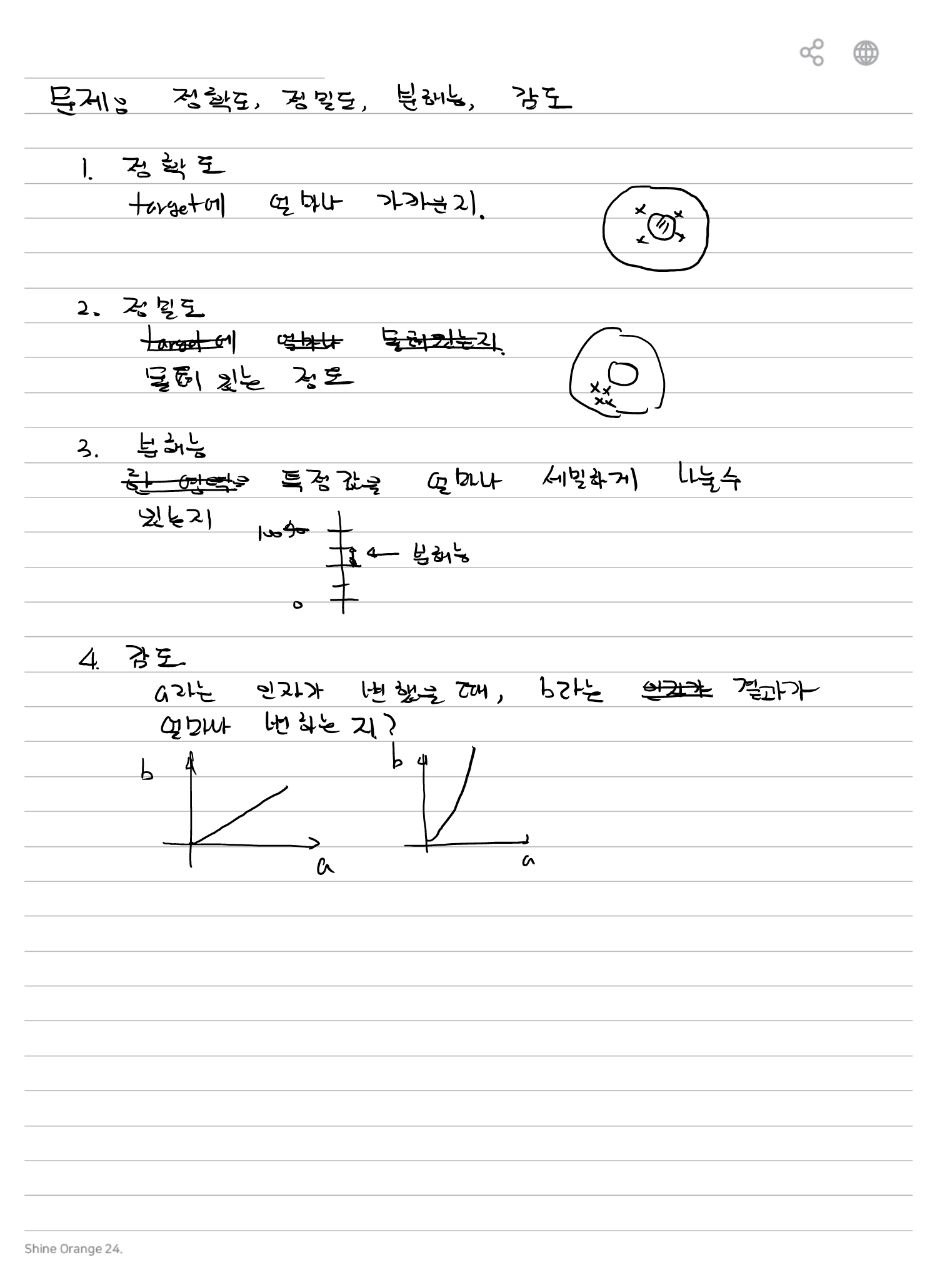 문제: 정확도, 정밀도, 분해능, 감도
1. 정확도
target에 얼마나 가까운지.
2. 정밀도
target에 얼마나 몰려있는지.
몰려 있는 정도
3. 분해능
한 영역을 특정값을 얼마나 세밀하게 나눌수
있는지
100
← 분해능
0
4. 감도
a라는 인자가 변했을 때, b라는 인자가 결과가
얼마나 변하는 지?
b
b
a
a
Shine Orange 24.